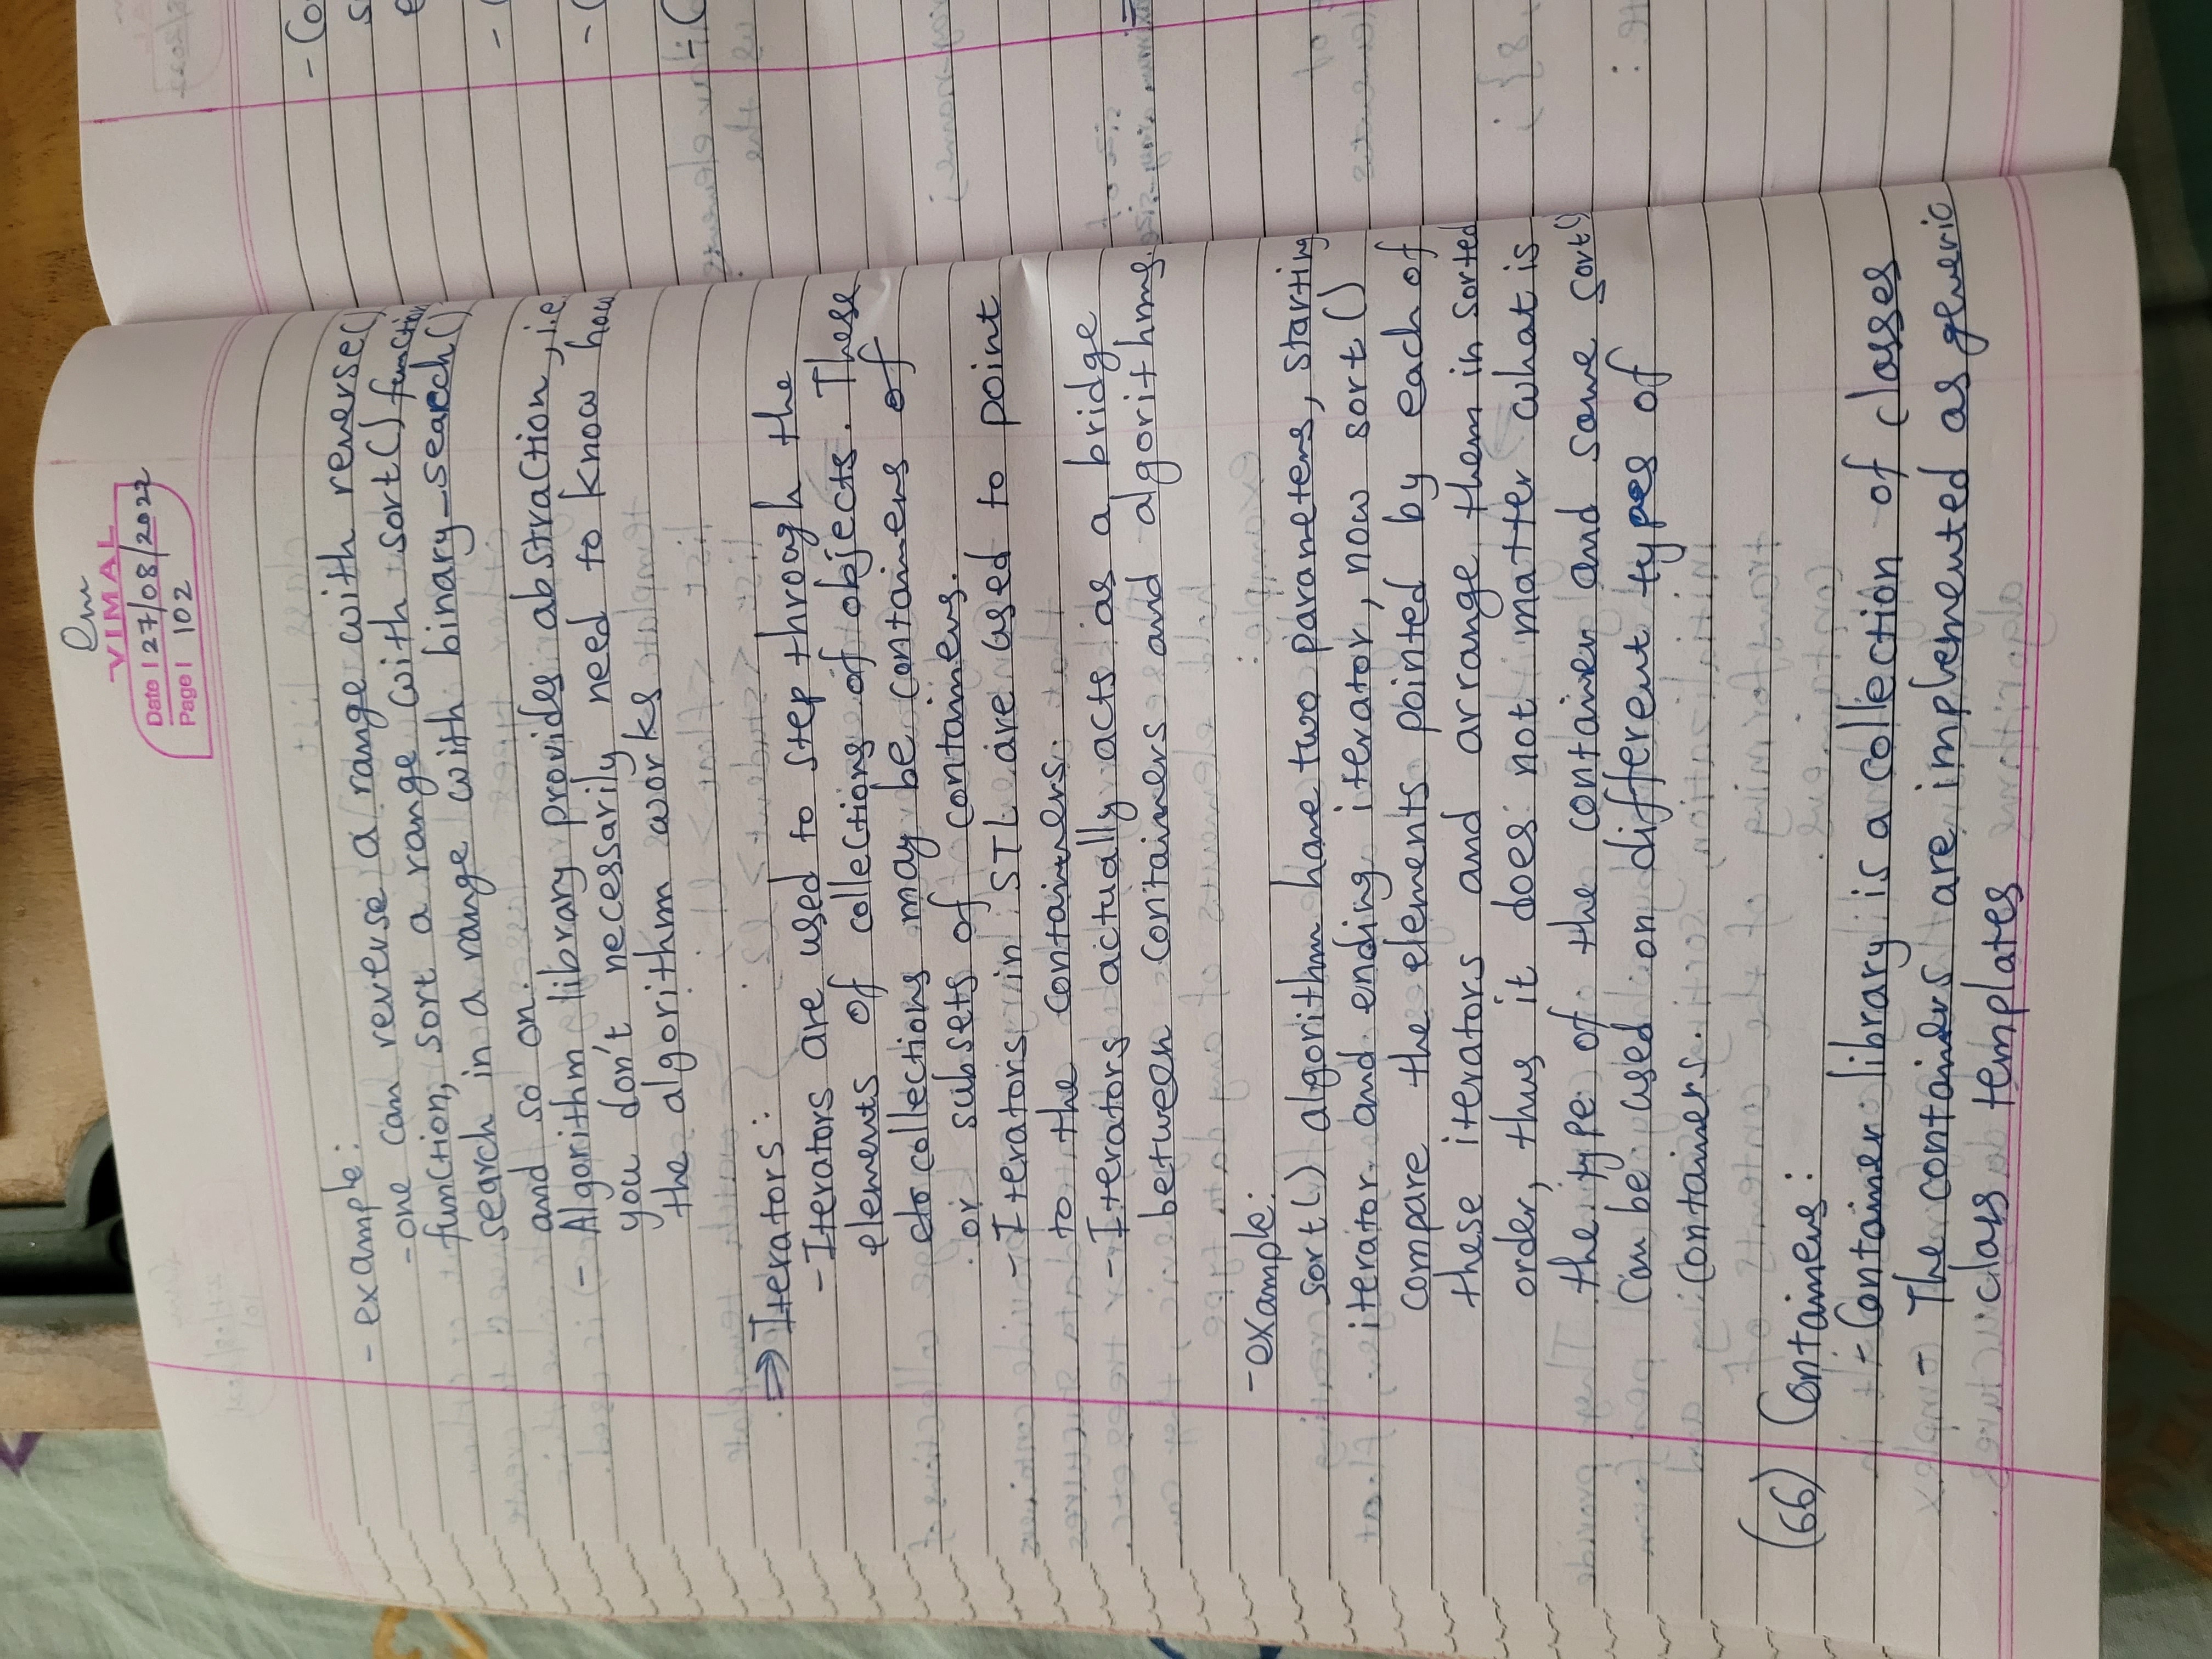 Om
VIMAL
Date 27/08/2022
Page 102
- example:
- one can reverse a range with reverse()
function, sort a range with sort() function
search in a range with binary_search()
and so on.
- Algorithm library provides abstraction, i.e
you don't necessarily need to know how
the algorithm works
⇒ Iterators:
- Iterators are used to step through the
elements of collections of objects. These
collections may be containers of
or subsets of containers.
- Iterators in STL are used to point
to the containers.
- Iterators actually acts as a bridge
between containers and algorithms.
- example:
sort() algorithm have two parameters, starting
iterator and ending iterator, now sort()
compare the elements pointed by each of
these iterators and arrange them in sorted
order, thus it does not matter what is
the type of the container and same sort()
can be used on different types of
containers.
(66) Containers:
- Container library is a collection of classes
- The containers are implemented as generic
class templates